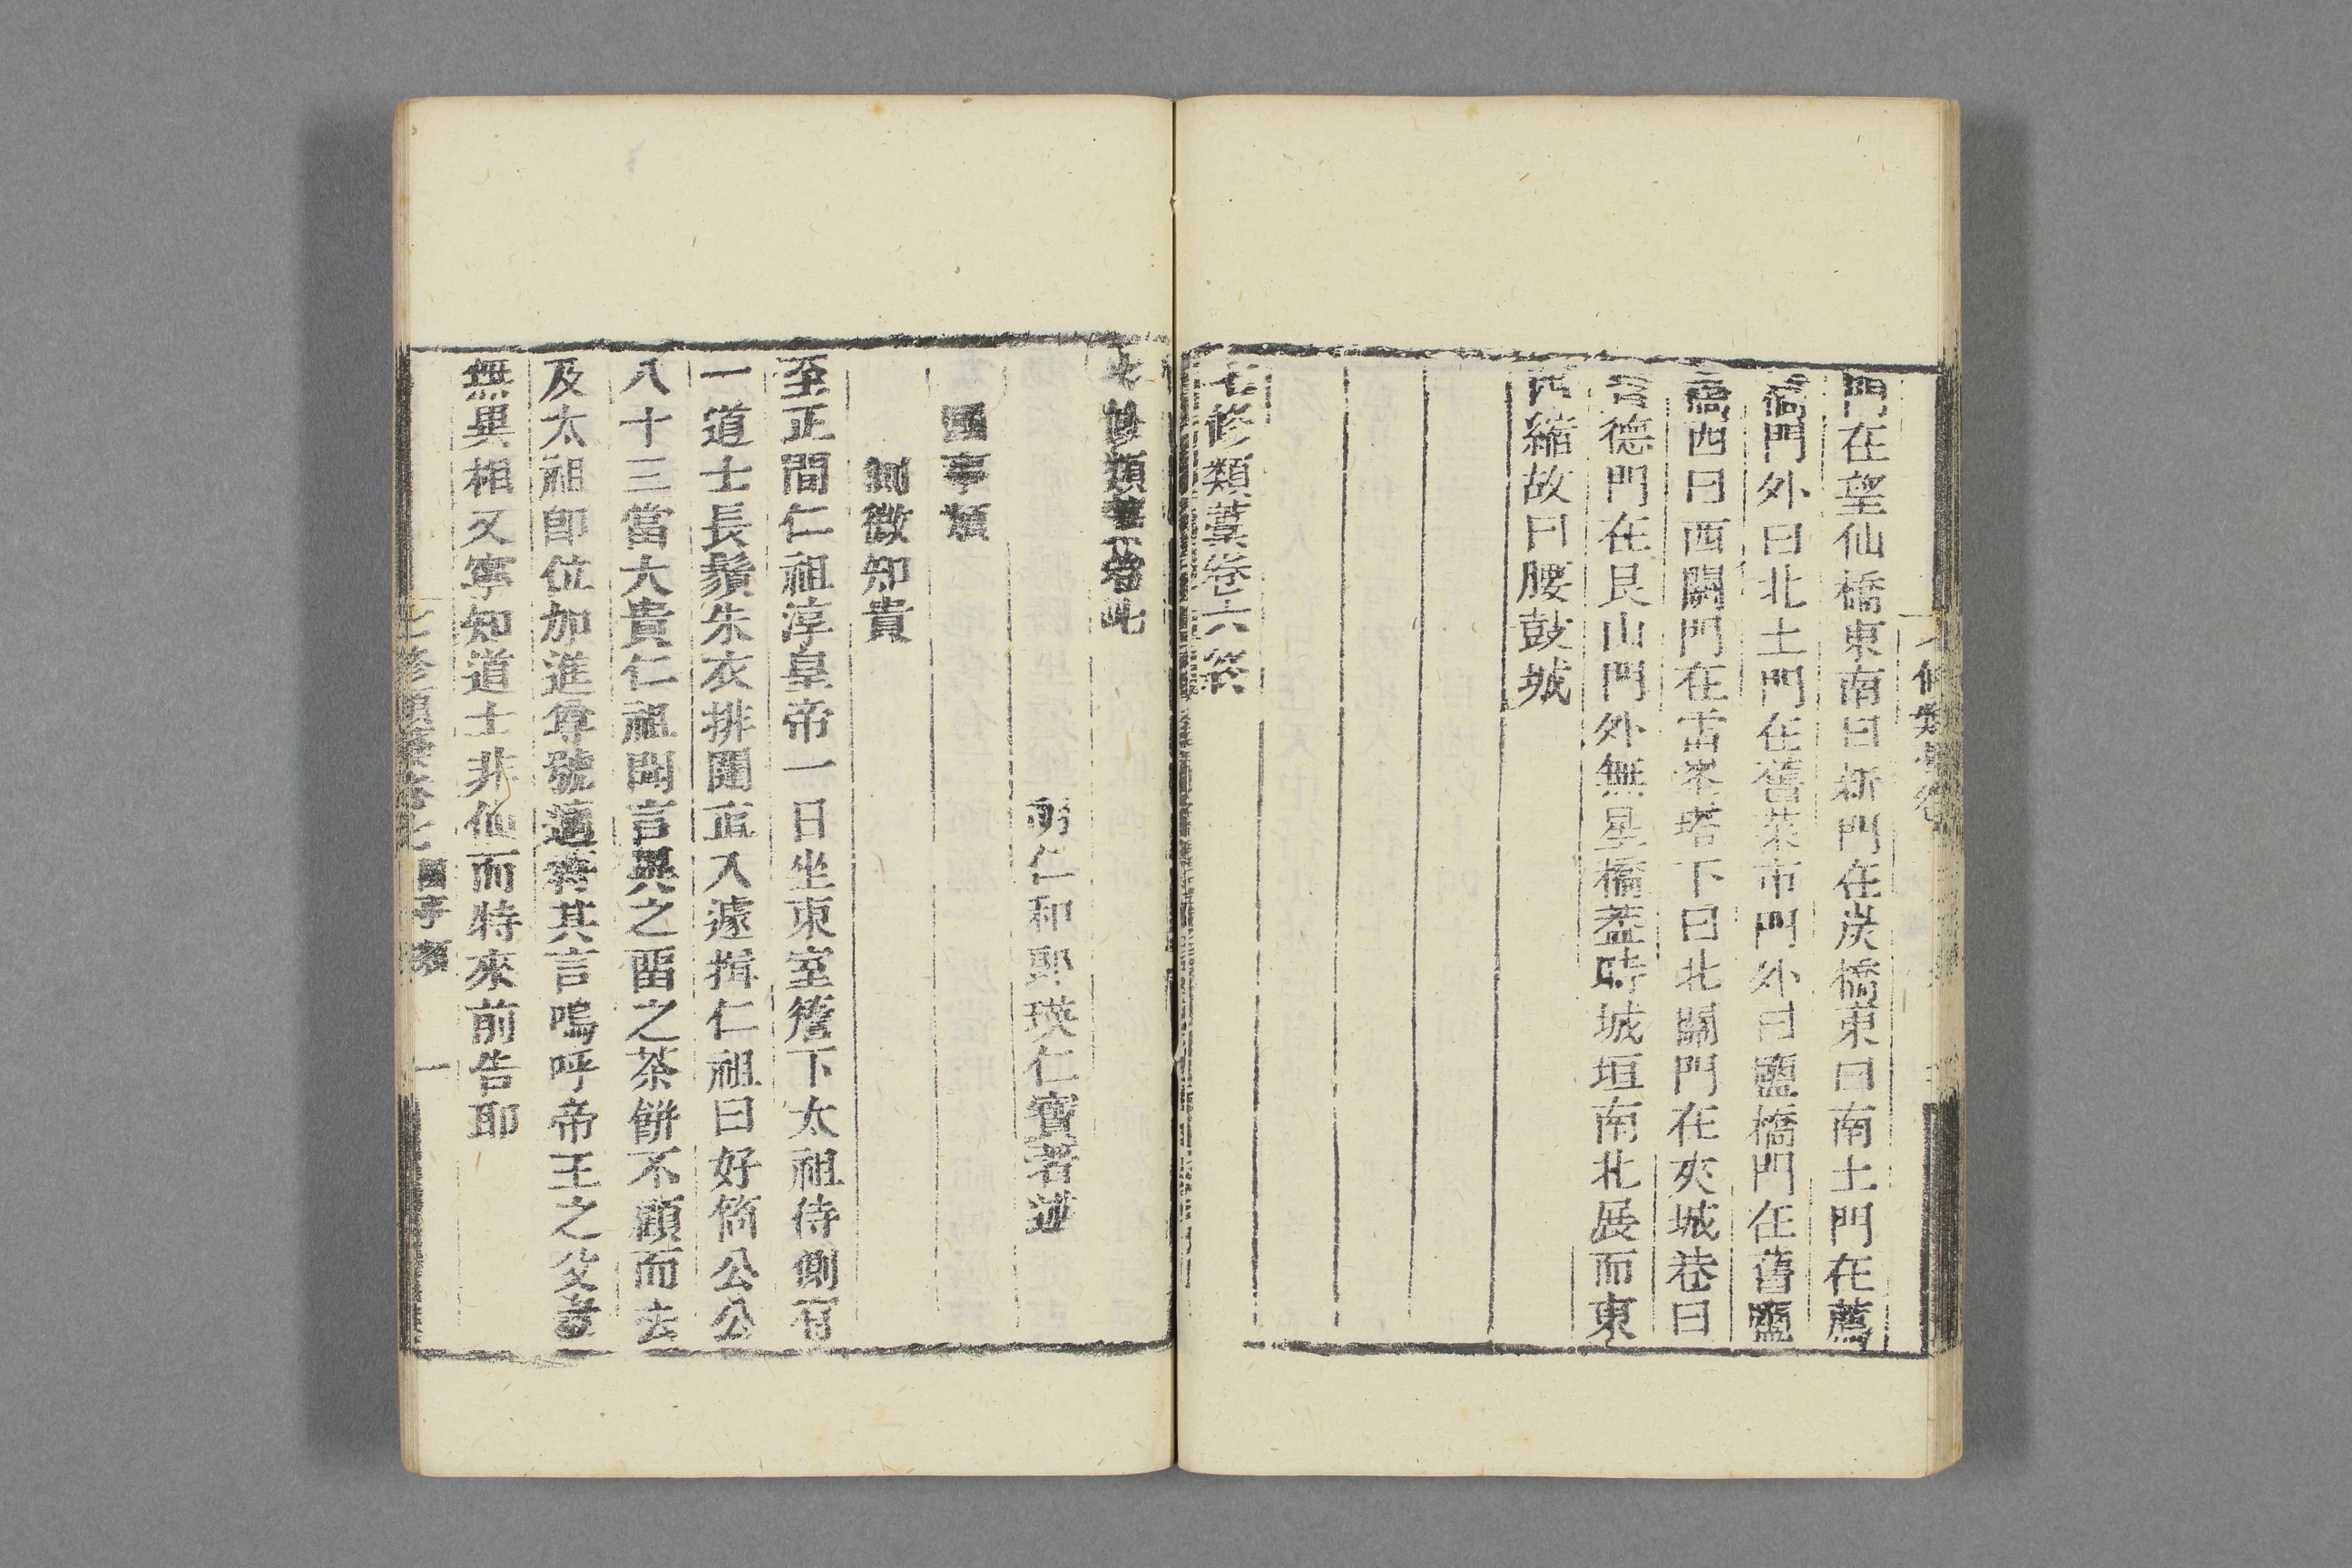 門在望仙橋東南曰新門在炭橋東曰南土門在薦
橋門外曰北土門在舊菜市門外曰鹽橋門在舊鹽
橋西曰西關門在雷峯塔下曰北關門在夾城巷曰
德門在艮山門外無星橋葢時城垣南北展而東
西縮故曰腰鼓城
七修類藁卷六終
七修類藁卷七
明仁和郎瑛仁寶著述
國事類
側微知貴
至正間仁祖淳皇帝一日坐東室簷下太祖侍側有
一道士長鬚朱衣排闥直入遽揖仁祖曰好箇公公
八十三當大貴仁祖聞言異之留之茶餅不顧而去
及太祖即位加進尊號適符其言嗚呼帝王之父豈
無異相又寧知道士非仙而特來前告耶
七修類藁卷七 國事類 一